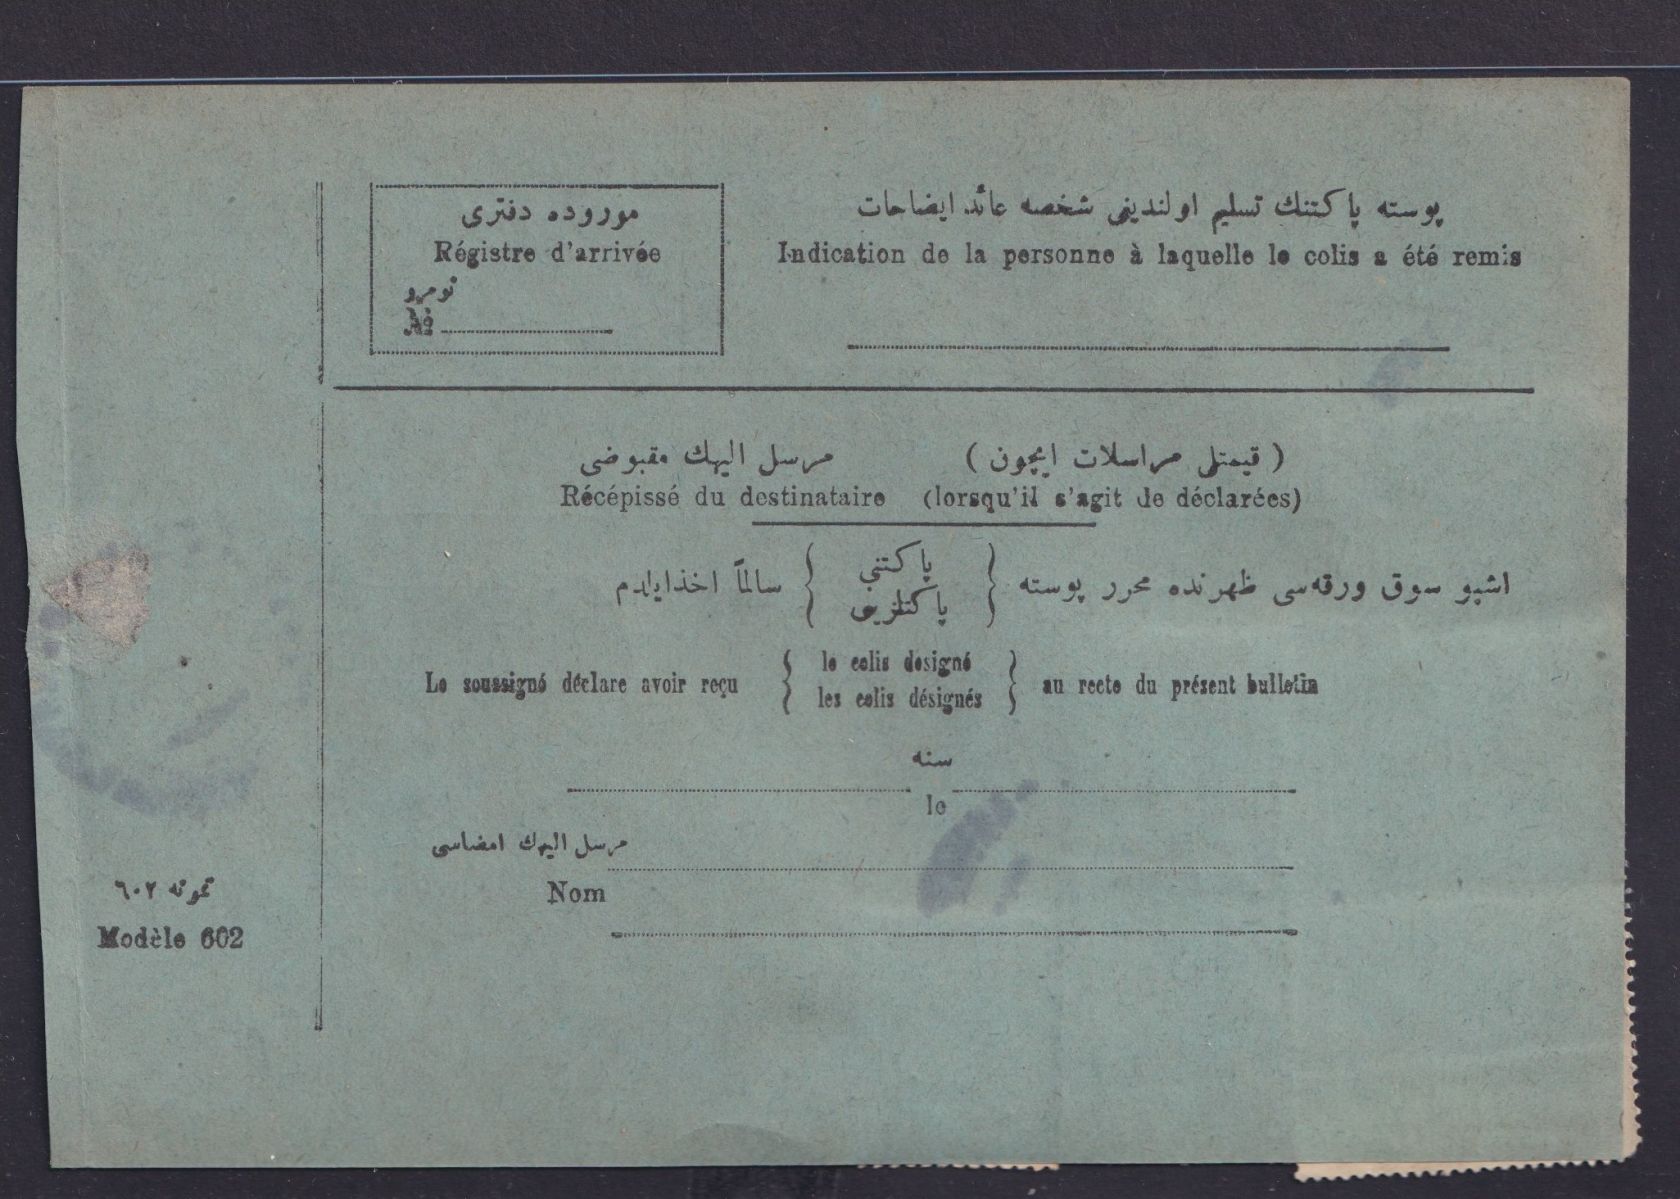 موروده دفتری
Régistre d'arrivée
نومرو
№
پوسته پاكتنك تسليم اولنديغی شخصه عائد ايضاحات
Indication de la personne à laquelle le colis a été remis
مرسل اليهك مقبوضی (قيمتلی مراسلات ايچون)
Récépissé du destinataire (lorsqu'il s'agit de déclarées)
اشبو سوق ورقه‌سی ظهرنده محرر پوسته { پاكتنی
پاكتلرينی } سالماً اخذايلدم
Le soussigné déclare avoir reçu { le colis designé
les colis désignés } au recto du présent bulletin
سنه
le
مرسل اليهك امضاسی
Nom
نمونه ٦٠٢
Modèle 602